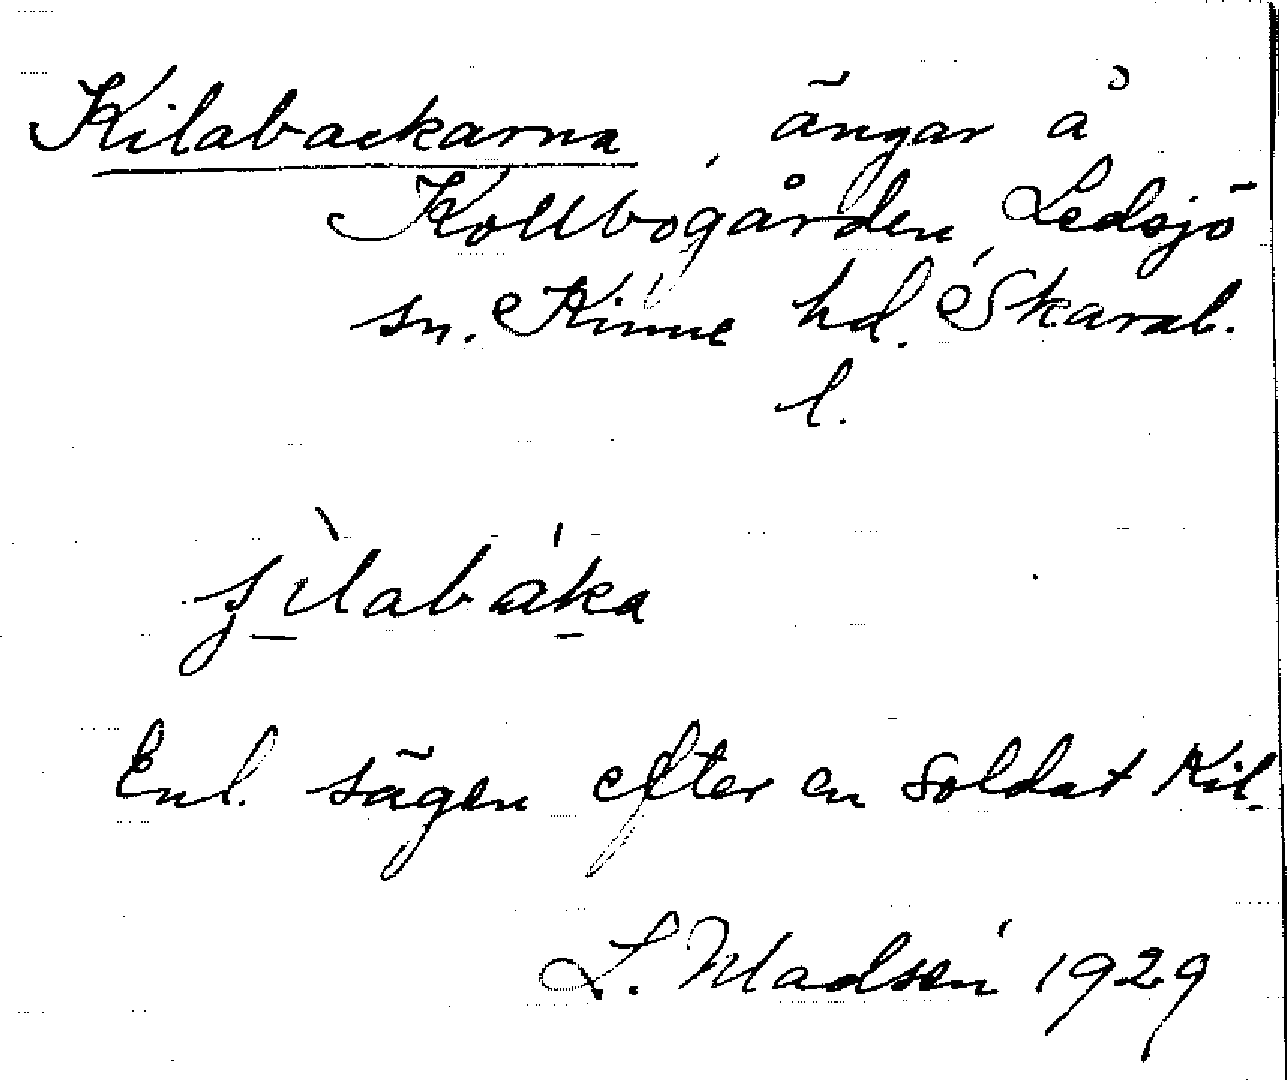 Kilabackarna, ängar å
Kollbogården, Ledsjö
sn. Kinne hd. Skarab.
l.
Enl. sägen efter en soldat Kil.
L. Madsén 1929